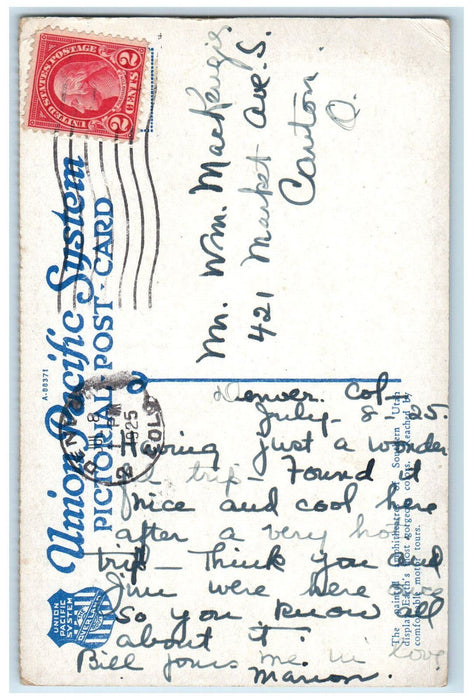 UNITED STATES POSTAGE
2 CENTS 2
Union Pacific System
PICTORIAL POST-CARD
A-88371
UNION
PACIFIC
SYSTEM
OVERLAND
DENVER
JUL 8
PM
1925
COLO
Mr. Wm. MacKenzie
421 Market Ave. S.
Canton
O.
Denver. Col.
July - 8 - 25.
Having just a wonder
trip - Found it
nice and cool here
after a very hot
trip - Think you and
Jim were here
so you know all
about it.
Bill joins me in love
Marion.
The painted amphitheatres of Southern Utah
display Earth's most gorgeous colors. Reached by
comfortable motor tours.